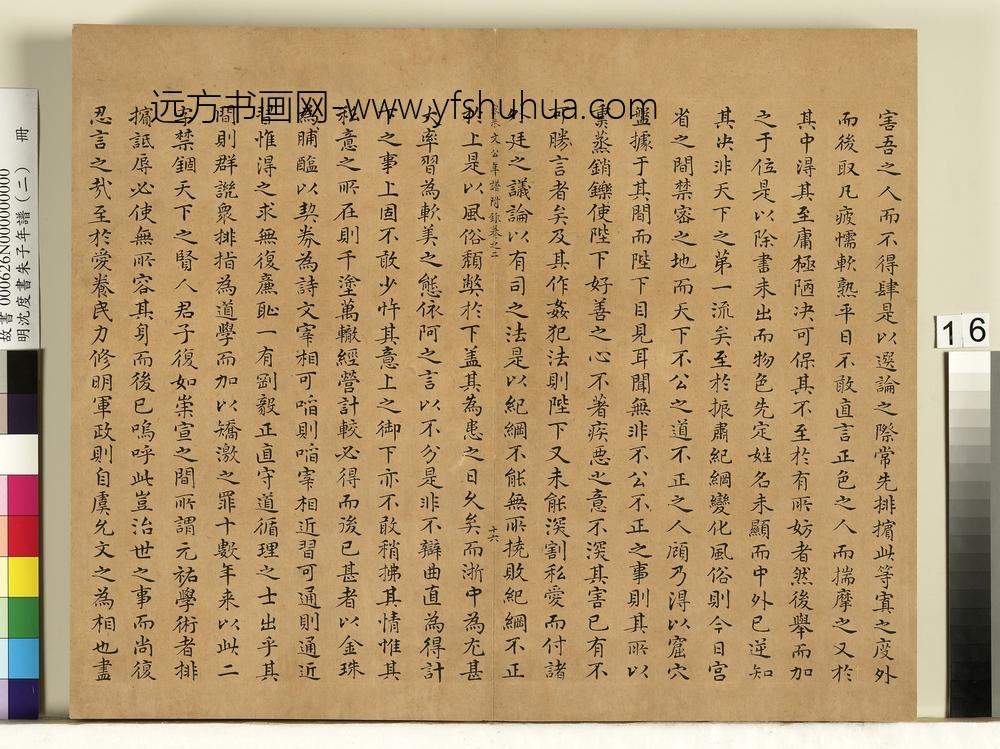 害吾之人而不得肆是以選論之際常先排擯此等寘之度外
而後取凡疲懦軟熟平日不敢直言正色之人而揣摩之又於
其中得其至庸極陋決可保其不至於有所妨者然後舉而加
之于位是以除書未出而物色先定姓名未顯而中外已逆知
其决非天下之第一流矣至於振肅紀綱變化風俗則今日宮
省之間禁密之地而天下不公之道不正之人顧乃得以窟穴
盤據于其間而陛下目見耳聞無非不公不正之事則其所以
熏蒸銷鑠使陛下好善之心不著疾惡之意不深其害已有不
可勝言者矣及其作姦犯法則陛下又未能深割私愛而付諸
外廷之議論以有司之法是以紀綱不能無所撓敗紀綱不正
文公年譜附錄卷之二
十六
於上是以風俗頹弊於下盖其為患之日久矣而浙中為尤甚
大率習為軟美之態依阿之言以不分是非不辯曲直為得計
下之事上固不敢少忤其意上之御下亦不敢稍拂其情惟其
私意之所在則千塗萬轍經營計較必得而後已甚者以金珠
為脯醢以契券為詩文宰相可啗則啗宰相近習可通則通近
習惟得之求無復廉耻一有剛毅正直守道循理之士出乎其
間則群說衆排指為道學而加以矯激之罪十數年来以此二
字禁錮天下之賢人君子復如崇宣之間所謂元祐學術者排
擯詆辱必使無所容其身而後已嗚呼此豈治世之事而尚復
忍言之㢤至於愛養民力修明軍政則自虞允文之為相也盡
远方书画网-www.yfshuhua.com
故書 000626N000000000
明沈度書朱子年譜(二) 冊
16